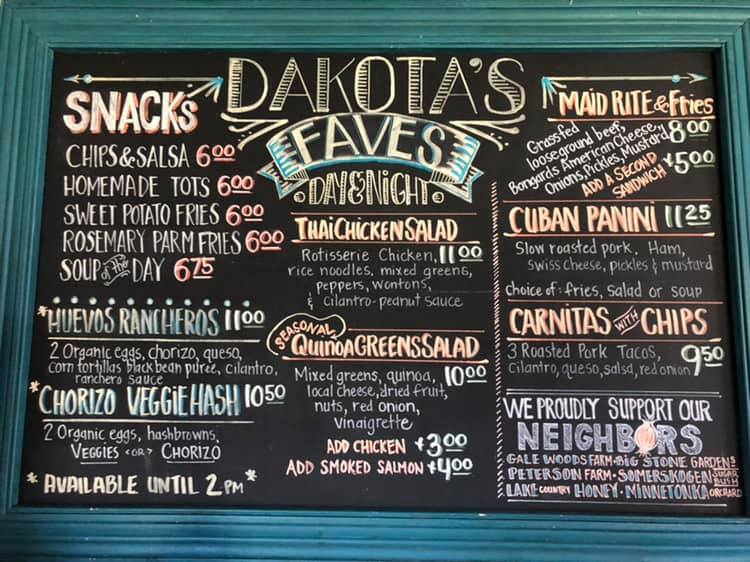 DAKOTA'S
FAVES
DAY & NIGHT
SNACKS
CHIPS & SALSA 6.00
HOMEMADE TOTS 6.00
SWEET POTATO FRIES 6.00
ROSEMARY PARM FRIES 6.00
SOUP of the DAY 6.75
*HUEVOS RANCHEROS 11.00
2 Organic eggs, chorizo, queso,
corn tortillas black bean purée, cilantro,
ranchero sauce
*CHORIZO VEGGIE HASH 10.50
2 Organic eggs, hashbrowns,
VEGGIES <OR> CHORIZO
* AVAILABLE UNTIL 2PM *
THAI CHICKEN SALAD
Rotisserie Chicken, 11.00
rice noodles, mixed greens,
peppers, wontons,
& cilantro-peanut sauce
SEASONAL
QUINOA GREENS SALAD
Mixed greens, quinoa, 10.00
local cheese, dried fruit,
nuts, red onion,
vinaigrette
ADD CHICKEN +3.00
ADD SMOKED SALMON +4.00
MAID RITE & Fries
Grassfed 8.00
loose ground beef,
Bongards American Cheese,
Onions, Pickles, Mustard
ADD A SECOND +5.00
SANDWICH
CUBAN PANINI 11.25
Slow roasted pork, Ham,
Swiss cheese, pickles & mustard
choice of: fries, salad or soup
CARNITAS WITH CHIPS
3 Roasted Pork Tacos, 9.50
Cilantro, queso, salsa, red onion
WE PROUDLY SUPPORT OUR
NEIGHBORS
GALE WOODS FARM • BIG STONE GARDENS
PETERSON FARM • SOMERSKOGEN SUGAR BUSH
LAKE COUNTRY HONEY • MINNETONKA ORCHARD